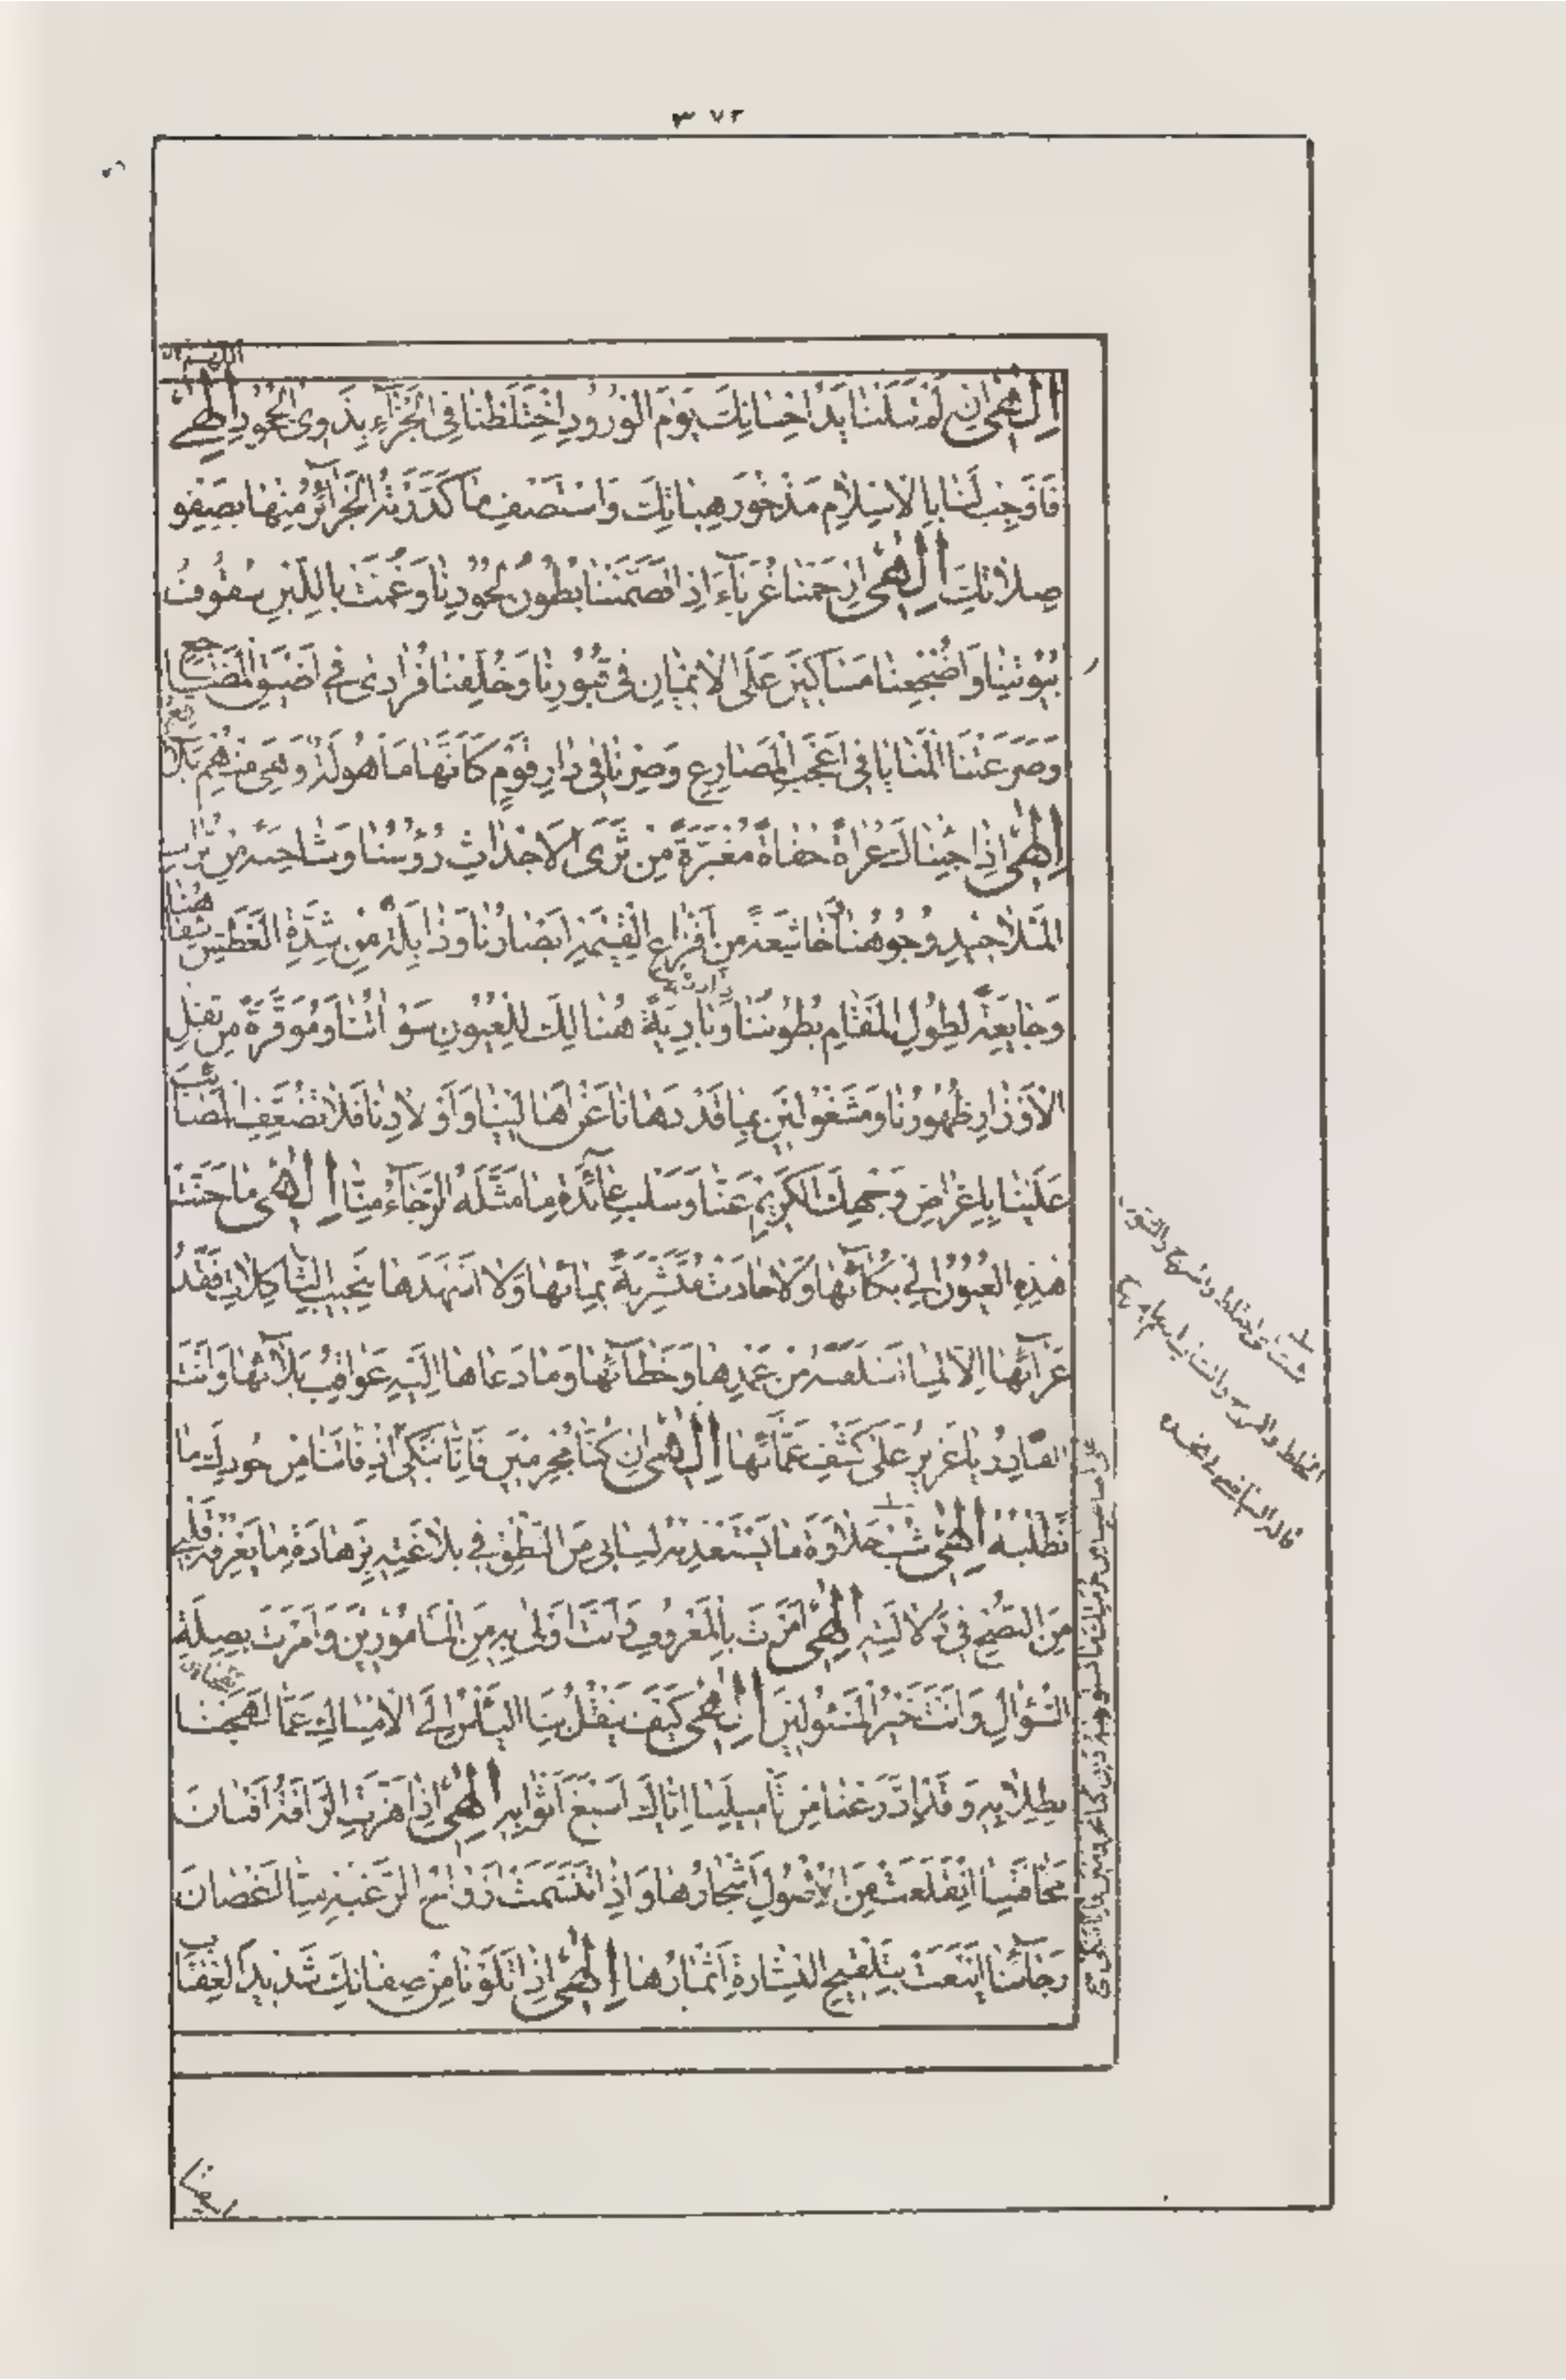 ٣٧٢
اللهم
إِلهِي إِن لَمْ تَنَلْنَا يَدُ احْسَانِكَ يَوْمَ الْوُرُودِ اخْتَلَطْنَا فِي الْجَزَآءِ بِذَوِي الْجُحُودِ إِلهِي
فَاَوْجِبْ لَنَا بِالْاِسْلَامِ مَذْخُورَ هِبَاتِكَ وَاسْتَصْفِ مَا كَدَّرَتْهُ الْجَرَآئِرُ مِنْهَا بِصَفْوِ
صِلَاتِكَ اِلهِي ارْحَمْنَا غُرَبَآءَ اِذَا تَضَمَّنَتْنَا بُطُونُ لُحُودِنَا وَغُمَّتْ بِاللَّبِنِ سُقُوفُ
بُيُوتِنَا وَاُضْجِعْنَا مَسَاكِينَ عَلَى الْاَيْمَانِ فِي قُبُورِنَا وَخُلِّفْنَا فُرَادَى فِي اَضْيَقِ الْمَضَاجِعِ
وَصَرَعَتْنَا الْمَنَايَا فِي اَعْجَبِ الْمَصَارِعِ وَصِرْنَا فِي دَارِ قَوْمٍ كَاَنَّهَا مَاْهُولَةٌ وَهِيَ مِنْهُمْ بَلَاقِعُ
اِلهِي اِذَا جِئْنَاكَ عُرَاةً حُفَاةً مُغْبَرَّةً مِنْ ثَرَى الْاَجْدَاثِ رُؤُسُنَا وَشَاحِبَةً مِنْ تُرَابِ
الْمَلَاحِيدِ وُجُوهُنَا خَاشِعَةً مِنْ اَفْزَاعِ الْقِيمَةِ اَبْصَارُنَا وَذَابِلَةً مِنْ شِدَّةِ الْعَطَشِ شِفَاهُنَا
وَجَايِعَةً لِطُولِ الْمَقَامِ بُطُونُنَا وَبَادِيَةً هُنَالِكَ لِلْعُيُونِ سَوْاٰتُنَا وَمُوقَرَةً مِنْ ثِقْلِ
الْاَوْزَارِ ظُهُورُنَا وَمَشْغُولِينَ بِمَا قَدْ دَهَانَا عَنْ اَهَالِينَا وَاَوْلَادِنَا فَلَا تُضَعِّفِ الْمَصَائِبَ
عَلَيْنَا بِاِعْرَاضِ وَجْهِكَ الْكَرِيمِ عَنَّا وَسَلْبِ عَآئِدَةِ مَا مَثَّلَهُ الرَّجَآءُ مِنَّا اِلهِي مَا حَنَّتْ
هٰذِهِ الْعُيُونُ اِلَى بُكَآئِهَا وَلَا جَادَتْ مُتَشَرِّبَةً بِمَائِهَا وَلَا اَشْهَدَهَا بِنَحِيبِ الثَّاكِلَاتِ فَقْدُ
عَزَآئِهَا اِلَّا لِمَا اَسْلَفَتْهُ مِنْ عَمْدِهَا وَخَطَآئِهَا وَمَا دَعَاهَا اِلَيْهِ عَوَاقِبُ بَلَآئِهَا وَاَنْتَ
الْقَادِرُ يَا عَزِيزُ عَلَى كَشْفِ غَمَّآئِهَا اِلهِي اِنْ كُنَّا مُجْرِمِينَ فَاِنَّا نَبْكِي عَلَى اِضَاعَتِنَا مِنْ حُرْمَتِكَ مَا
نَطْلُبُهُ اِلهِي شُبْ حَلَاوَةَ مَا يَسْتَعْذِبُهُ لِسَانِي مِنَ النُّطْقِ فِي بَلَاغَتِهِ بِزَهَادَةِ مَا يَعْرِفُهُ قَلْبِي
مِنَ النُّصْحِ فِي دَلَالَتِهِ اِلهِي اَمَرْتَ بِالْمَعْرُوفِ وَاَنْتَ اَوْلَى بِهِ مِنَ الْمَامُورِينَ وَاَمَرْتَ بِصِلَةِ
السُّؤَالِ وَاَنْتَ خَيْرُ الْمَسْئُولِينَ اِلهِي كَيْفَ يَنْقُلُ بِنَا الْيَاْسُ اِلَى الْاِمْسَاكِ عَمَّا لَهِجْنَا
بِطِلَابِهِ وَقَدِ ادَّرَعْنَا مِنْ تَاْمِيلِنَا اِيَّاكَ اَسْبَغَ اَثْوَابِهِ اِلهِي اِذَا هَزَّتِ الرَّاْفَةُ اَفْنَانَ
مَخَافَتِنَا انْقَلَعَتْ مِنَ الْاُصُولِ اَشْجَارُهَا وَاِذَا تَنَسَّمَتْ اَرْوَاحُ الرَّغْبَةِ مِنَّا اَغْصَانَ
رَجَآئِنَا اَيْنَعَتْ بِتَلْقِيحِ الْبِشَارَةِ اَثْمَارُهَا اِلهِي اِذَا تَلَوْنَا مِنْ صِفَاتِكَ شَدِيدَ الْعِقَابِ